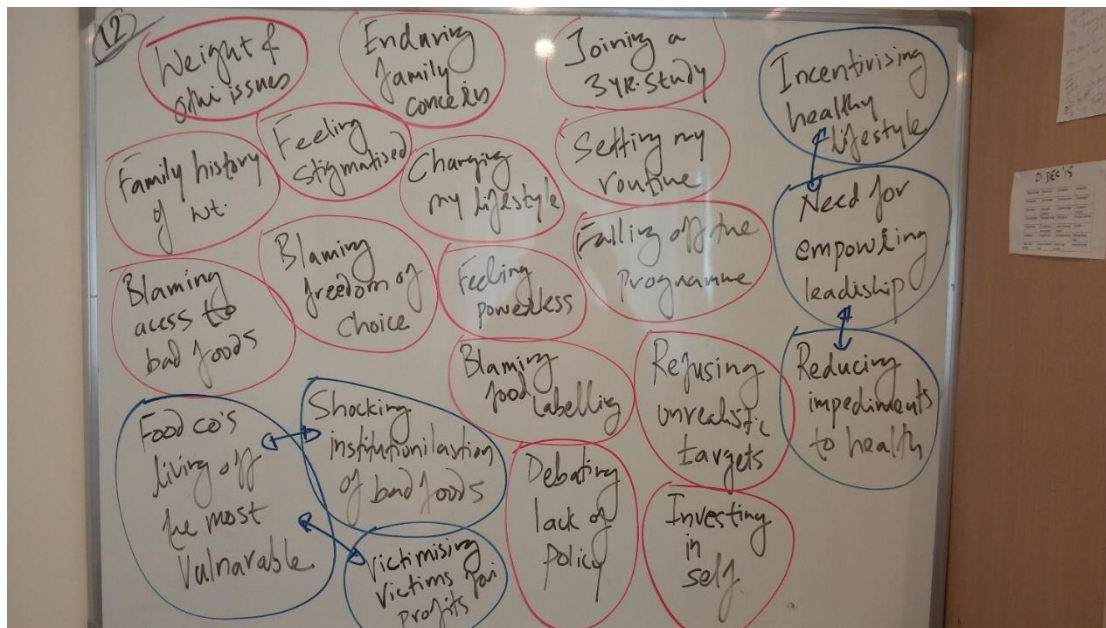 12
Weight &
othr issues
Enduring
family
concerns
Joining a
3 YR. Study
Incentivising
healthy
lifestyle
Family history
of wt.
Feeling
stigmatised
Changing
my lifestyle
Setting my
routine
Need for
empowering
leadership
Blaming
acess to
bad foods
Blaming
freedom of
choice
Feeling
powerless
Falling off the
Programme
Blaming
food labelling
Refusing
unrealistic
targets
Reducing
impediments
to health
Food co's
living off
the most
Vulnarable
Shocking
institutionilastion
of bad foods
Victimising
victims for
profits
Debating
lack of
policy
Investing
in
self
01 DEC '15